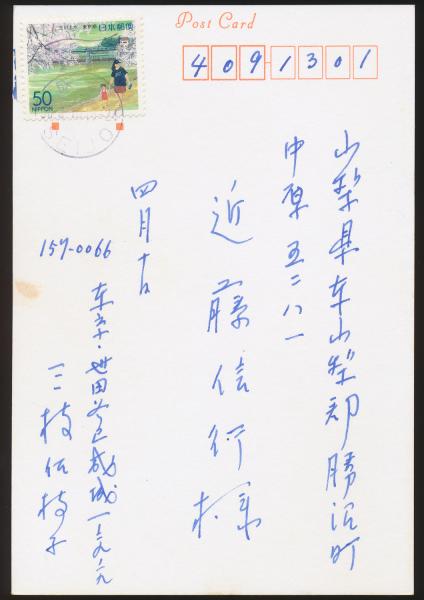 Post Card
日本郵便
50
NIPPON
SEIJO
409-1301
山梨県東山梨郡勝沼町
中原五二八一
近藤信行様
四月十日
157-0066
東京・世田谷区成城一
三枝佐枝子